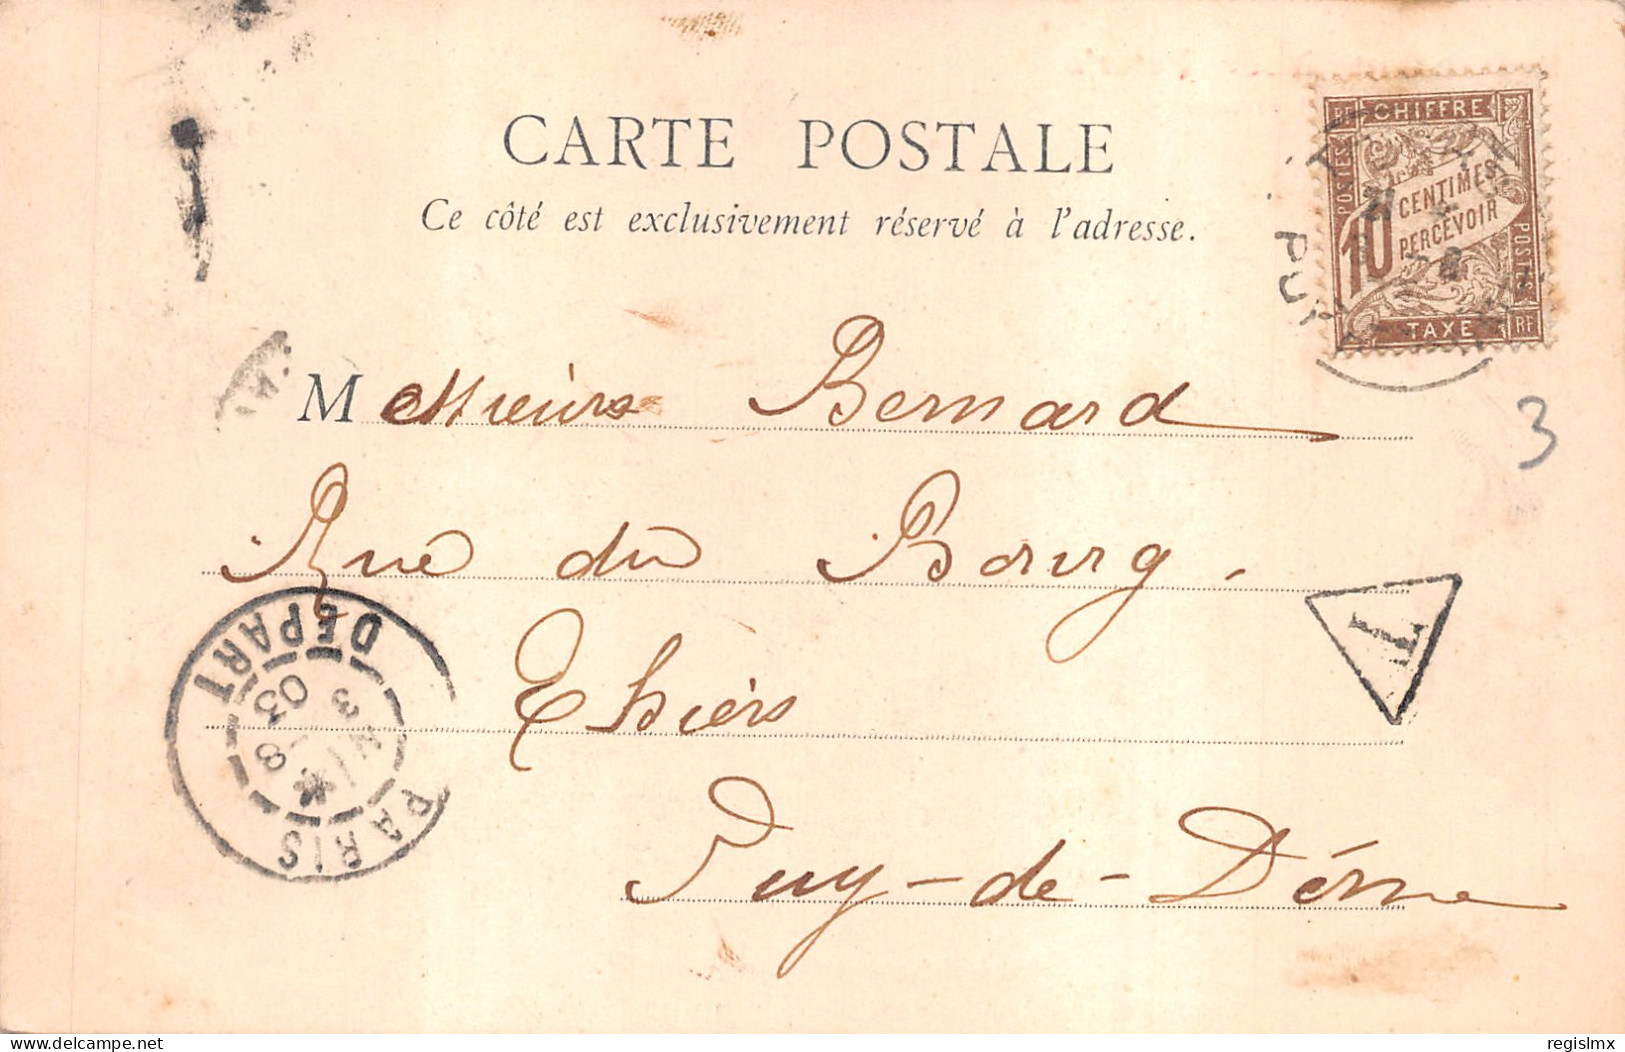 CARTE POSTALE
Ce côté est exclusivement réservé à l'adresse.
RF CHIFFRE
POSTES
10 CENTIMES
PERCEVOIR
POSTES
TAXE RF
PUY
Messieurs Bernard
3
Rue du Bourg.
T
Thiers
Puy-de-Dôme
PARIS
DEPART
8
3
03
delcampe.net
regislmx